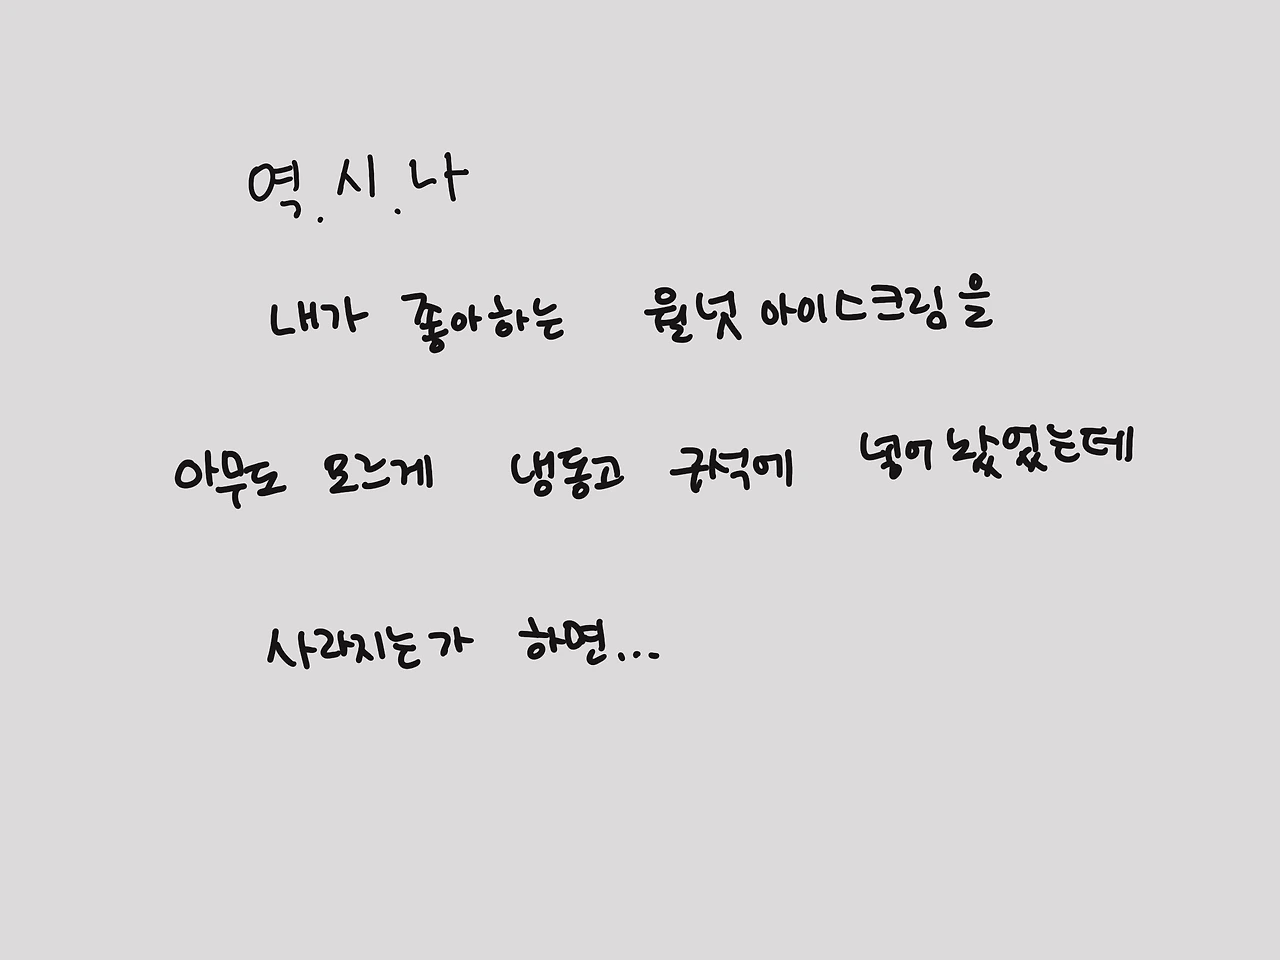 역.시.나
내가 좋아하는 월넛 아이스크림을
아무도 모르게 냉동고 구석에 넣어 놨었는데
사라지는가 하면...